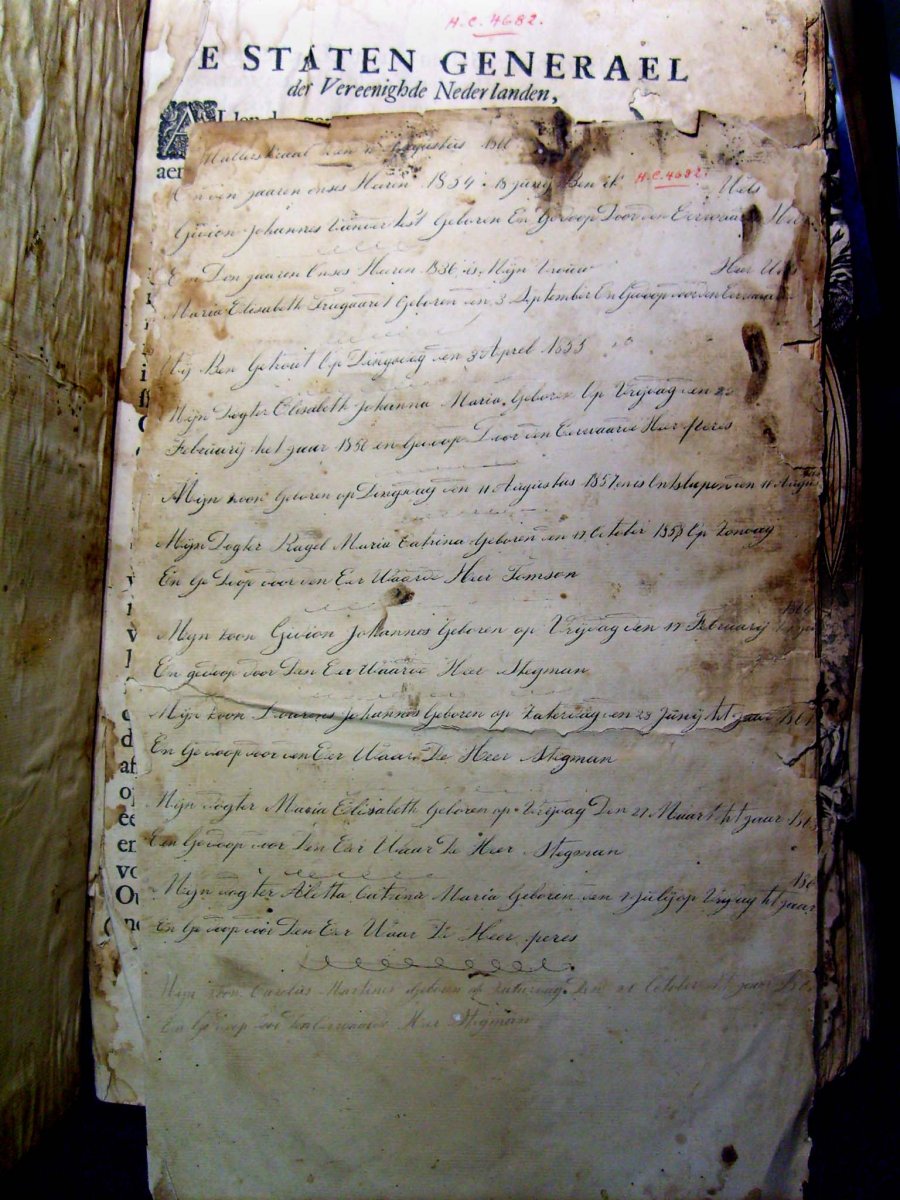 H.C. 4682.
E STATEN GENERAEL
der Vereenighde Nederlanden,
A
aer
Augustus
En den jaaren onses Heeren 1834. 18 Junij Ben ik
H.C. 4682.
Gidion Johannes Geboren En Gedoop Door den Eerwaarde Heer
En Den jaaren Onses Heeren 1836 is Mijn Vrouw Heer
Maria Elisabeth Geboren den 3 September En Gedoop door den Eerwaarde
Wij Ben Getrout Op Dingsdag den 3 April 1855
Mijn Dogter Elisabeth Johanna Maria Geboren Op Vrijdag den 22
Februarij het jaar 1856 en Gedoop Door den Eerwaarde Heer peres
Mijn zoon Geboren op Dingsdag den 11 Augustus 1857 en is Ontslapen den 11 August
Mijn Dogter Ragel Maria Catrina Geboren den 17 October 1858 Op Zondag
En Ge Doop door den Eer Waarde Heer Tomson
Mijn zoon Gidion Johannes Geboren op Vrijdag den 17 Februarij
En gedoop door Den Eer Waarde Heer Stegman
Mijn zoon Lourens Johannes Geboren op Zaterdag den 23 Junij het jaar
En Ge doop door den Eer Waar De Heer Stegman
Mijn dogter Maria Elisabeth Geboren op Vrijdag Den 27 Maart ht jaar
En Gedoop door Den Eer Waar De Heer Stegman
Mijn dogter Aletta Catrina Maria Geboren den Julij op Vrijdag ht jaar
En Ge doop door Den Eer Waar De Heer peres
Mijn zoon Carolus Martinus Geboren op Zaturdag Den October
En Gedoop door den Eerwaarde Heer Stegman